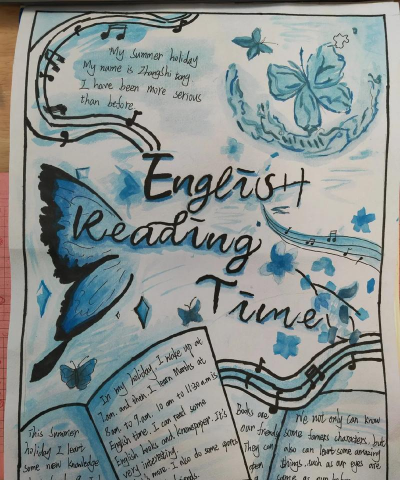 My summer holiday
My name is Zhangshi song
I have been more serious
than before
English
Reading
Time
In my holiday, I wake up at
7 am and then I learn Maths at
8 am to 9 am. 10 am to 11:30 a.m is
English time. I can read some
English books and knewspaper. It's
very interesting.
more. I also do some sports
This summer
holiday I learn
some new knowledge
Books are
our friends
They can
open
We not only can know
some famers characters, but
also can learn some amazing
things, such as our eyes are
same as our